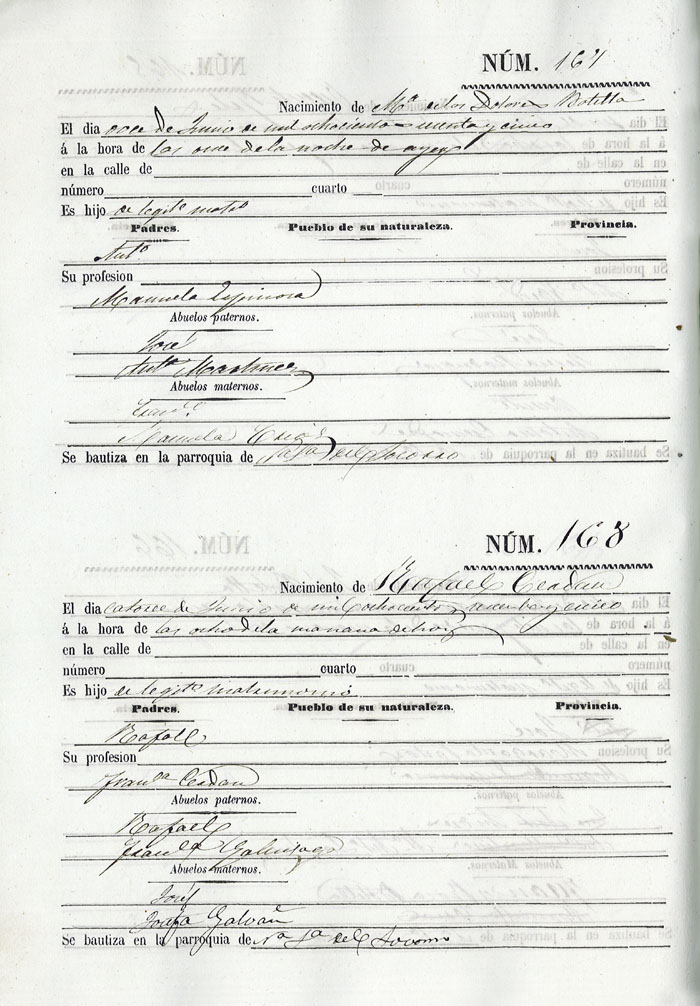 NÚM. 167
Nacimiento de Mª. de los Dolores Botella
El dia once de Junio de mil ochocientos sesenta y cinco
á la hora de las once de la noche de ayer
en la calle de
número cuarto
Es hijo de legit.º matr.º
Padres. Pueblo de su naturaleza. Provincia.
Ant.º
Su profesion
Manuela Espinosa
Abuelos paternos.
José
Ant.ª Martinez
Abuelos maternos.
Manuela
Se bautiza en la parroquia de del Socorro
NÚM. 168
Nacimiento de Rafael Cerdan
El dia catorce de Junio de mil ochocientos sesenta y cinco
á la hora de las ocho de la mañana de hoy
en la calle de
número cuarto
Es hijo de legit.º matrimonio
Padres. Pueblo de su naturaleza. Provincia.
Rafael
Su profesion
Fran.ca Cerdan
Abuelos paternos.
Rafael
Fran.ca
Abuelos maternos.
José
Josefa Galvañ
Se bautiza en la parroquia de N.ª S.ª del Socorro